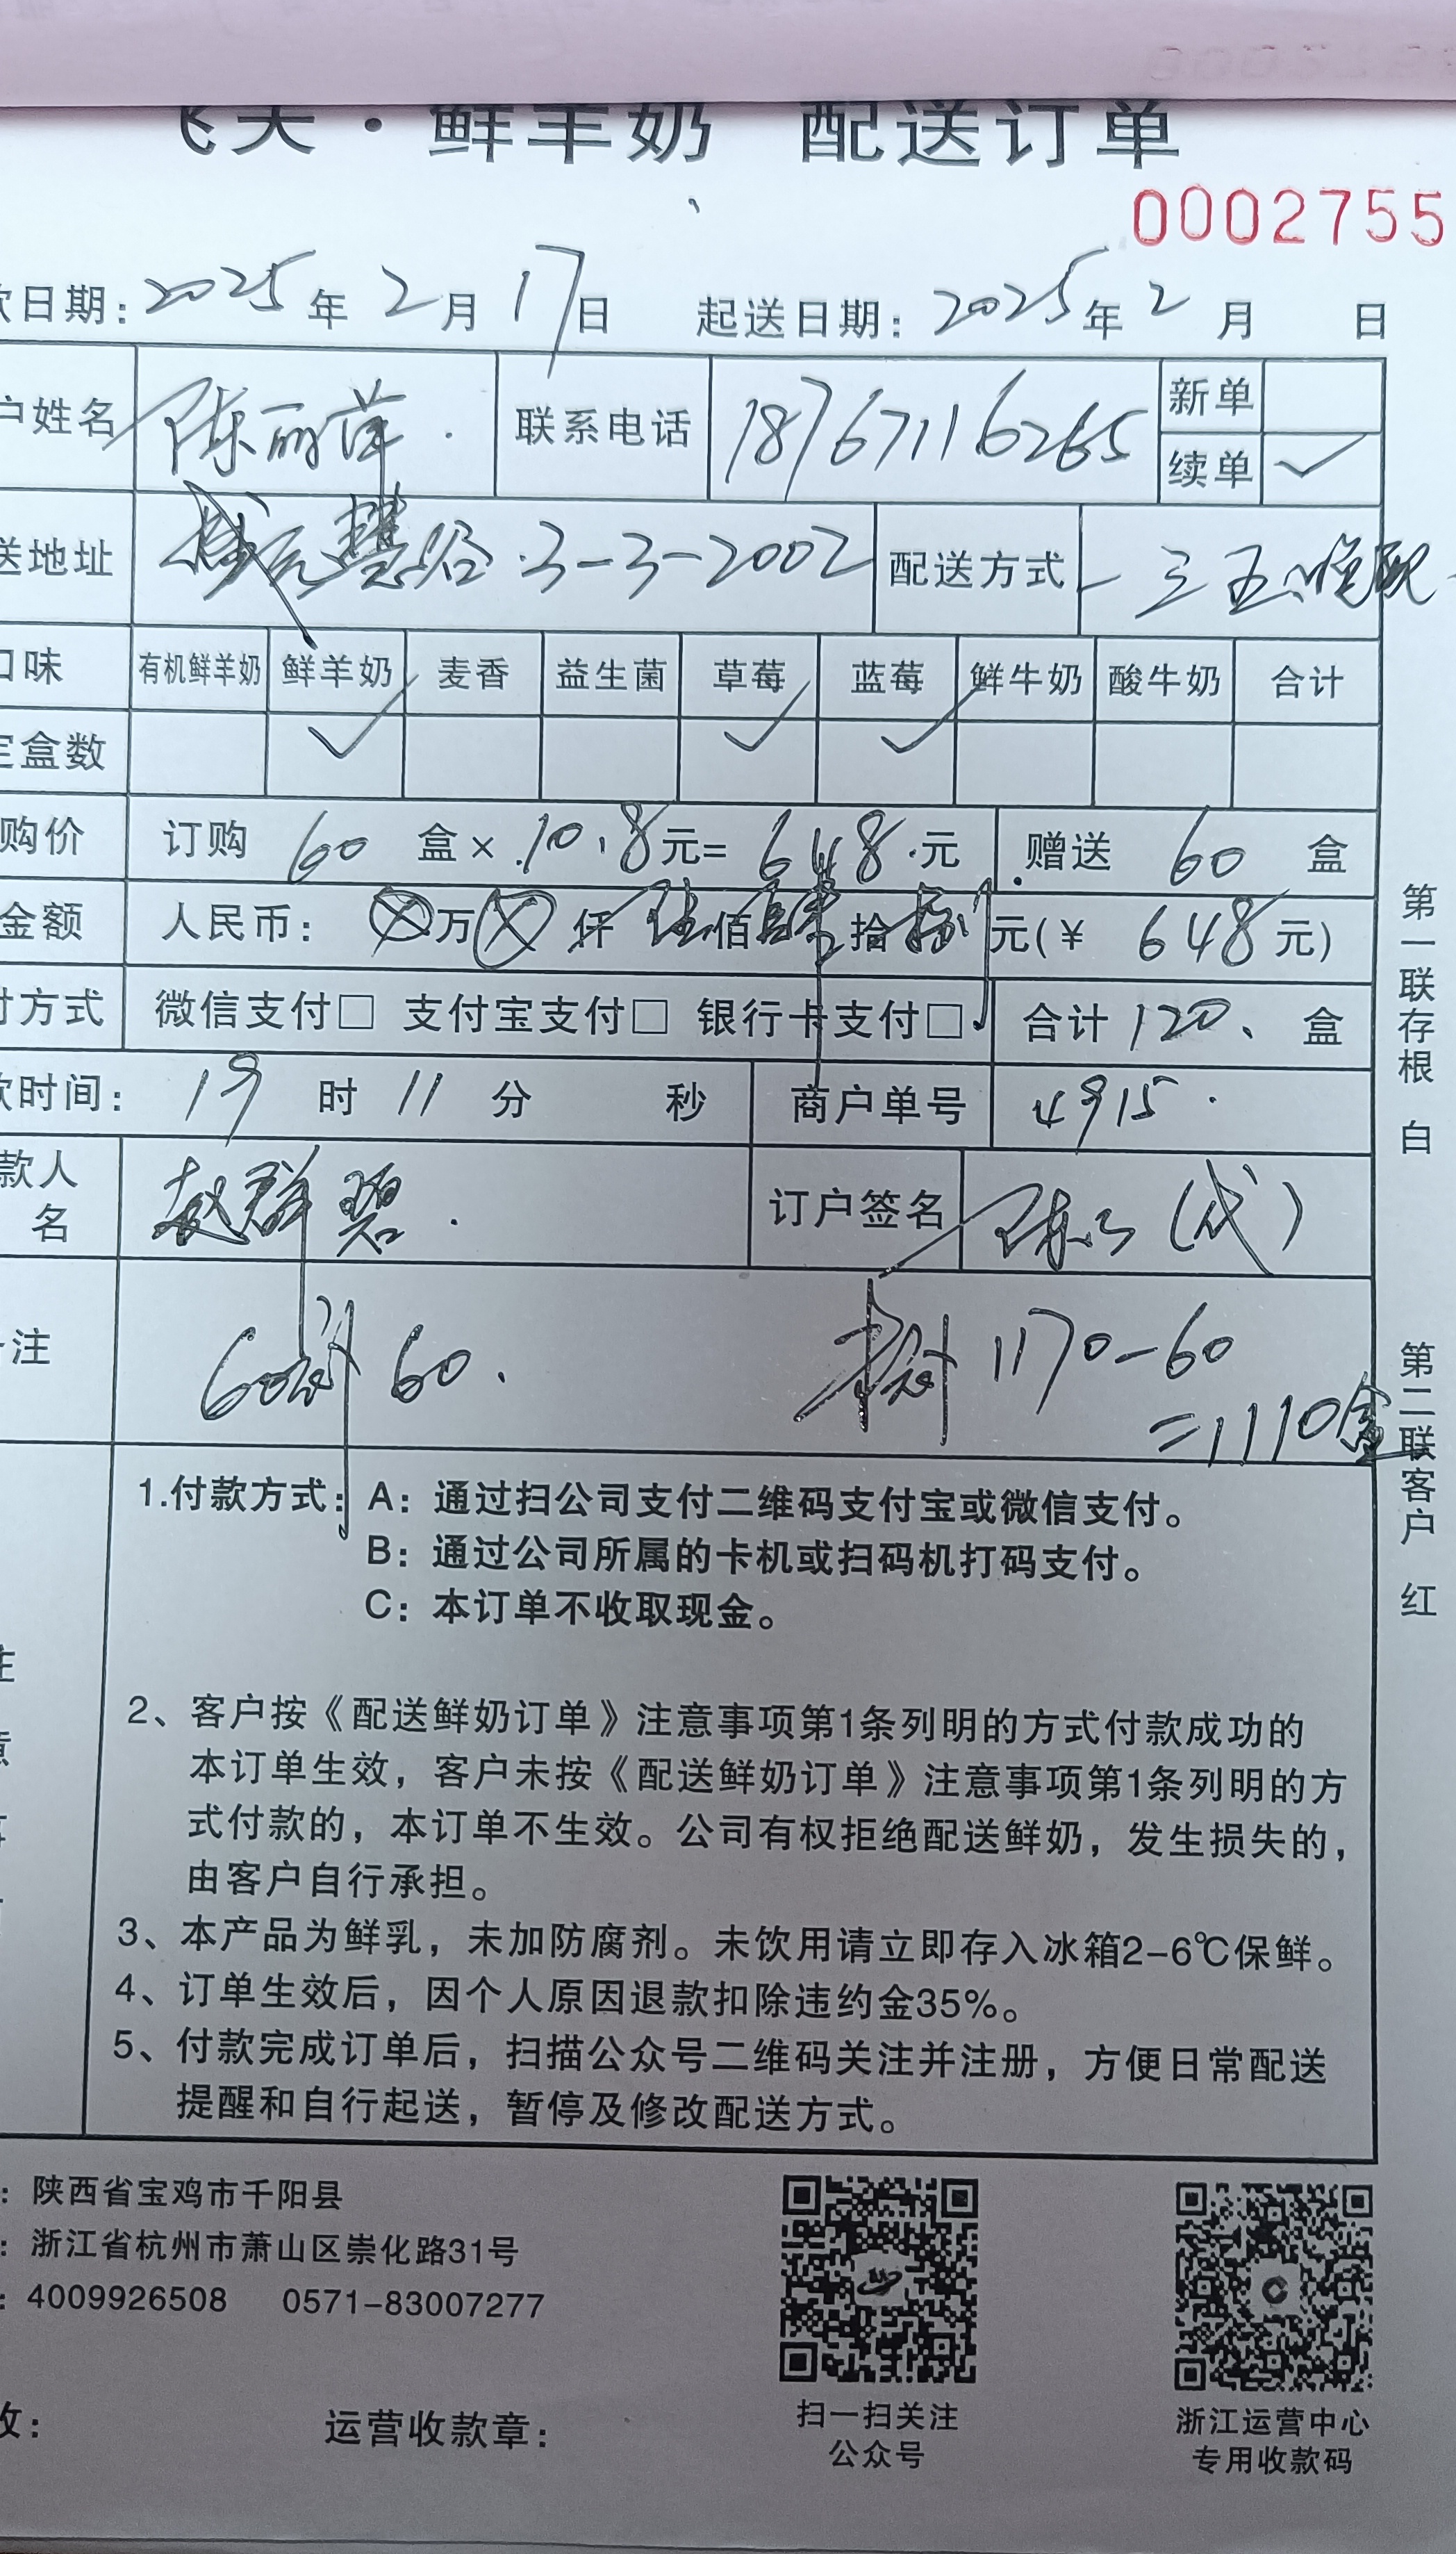 飞天·鲜羊奶 配送订单
0002755
款日期：2025年2月17日 起送日期：2025年2月 日
户姓名 陈丽萍 联系电话 18767116265 新单
续单 ✓
送地址 慧谷 3-3-2002 配送方式 一三五晚配
口味 有机鲜羊奶 鲜羊奶 麦香 益生菌 草莓 蓝莓 鲜牛奶 酸牛奶 合计
定盒数 ✓ ✓ ✓
购价 订购 60 盒× 10.8元= 648元 赠送 60 盒
金额 人民币：⊗万⊗仟 佰 拾 元(¥ 648元)
付方式 微信支付□ 支付宝支付□ 银行卡支付□ 合计 120 盒
款时间：19 时 11 分 秒 商户单号 4915
款人
名 赵群碧 订户签名 陈 (代)
注 60 60. 1170-60
=1110盒
1.付款方式：A：通过扫公司支付二维码支付宝或微信支付。
B：通过公司所属的卡机或扫码机打码支付。
C：本订单不收取现金。
2、客户按《配送鲜奶订单》注意事项第1条列明的方式付款成功的
本订单生效，客户未按《配送鲜奶订单》注意事项第1条列明的方
式付款的，本订单不生效。公司有权拒绝配送鲜奶，发生损失的，
由客户自行承担。
3、本产品为鲜乳，未加防腐剂。未饮用请立即存入冰箱2-6℃保鲜。
4、订单生效后，因个人原因退款扣除违约金35%。
5、付款完成订单后，扫描公众号二维码关注并注册，方便日常配送
提醒和自行起送，暂停及修改配送方式。
第一联存根 白
第二联客户 红
：陕西省宝鸡市千阳县
：浙江省杭州市萧山区崇化路31号
：4009926508 0571-83007277
收： 运营收款章：
扫一扫关注
公众号
浙江运营中心
专用收款码